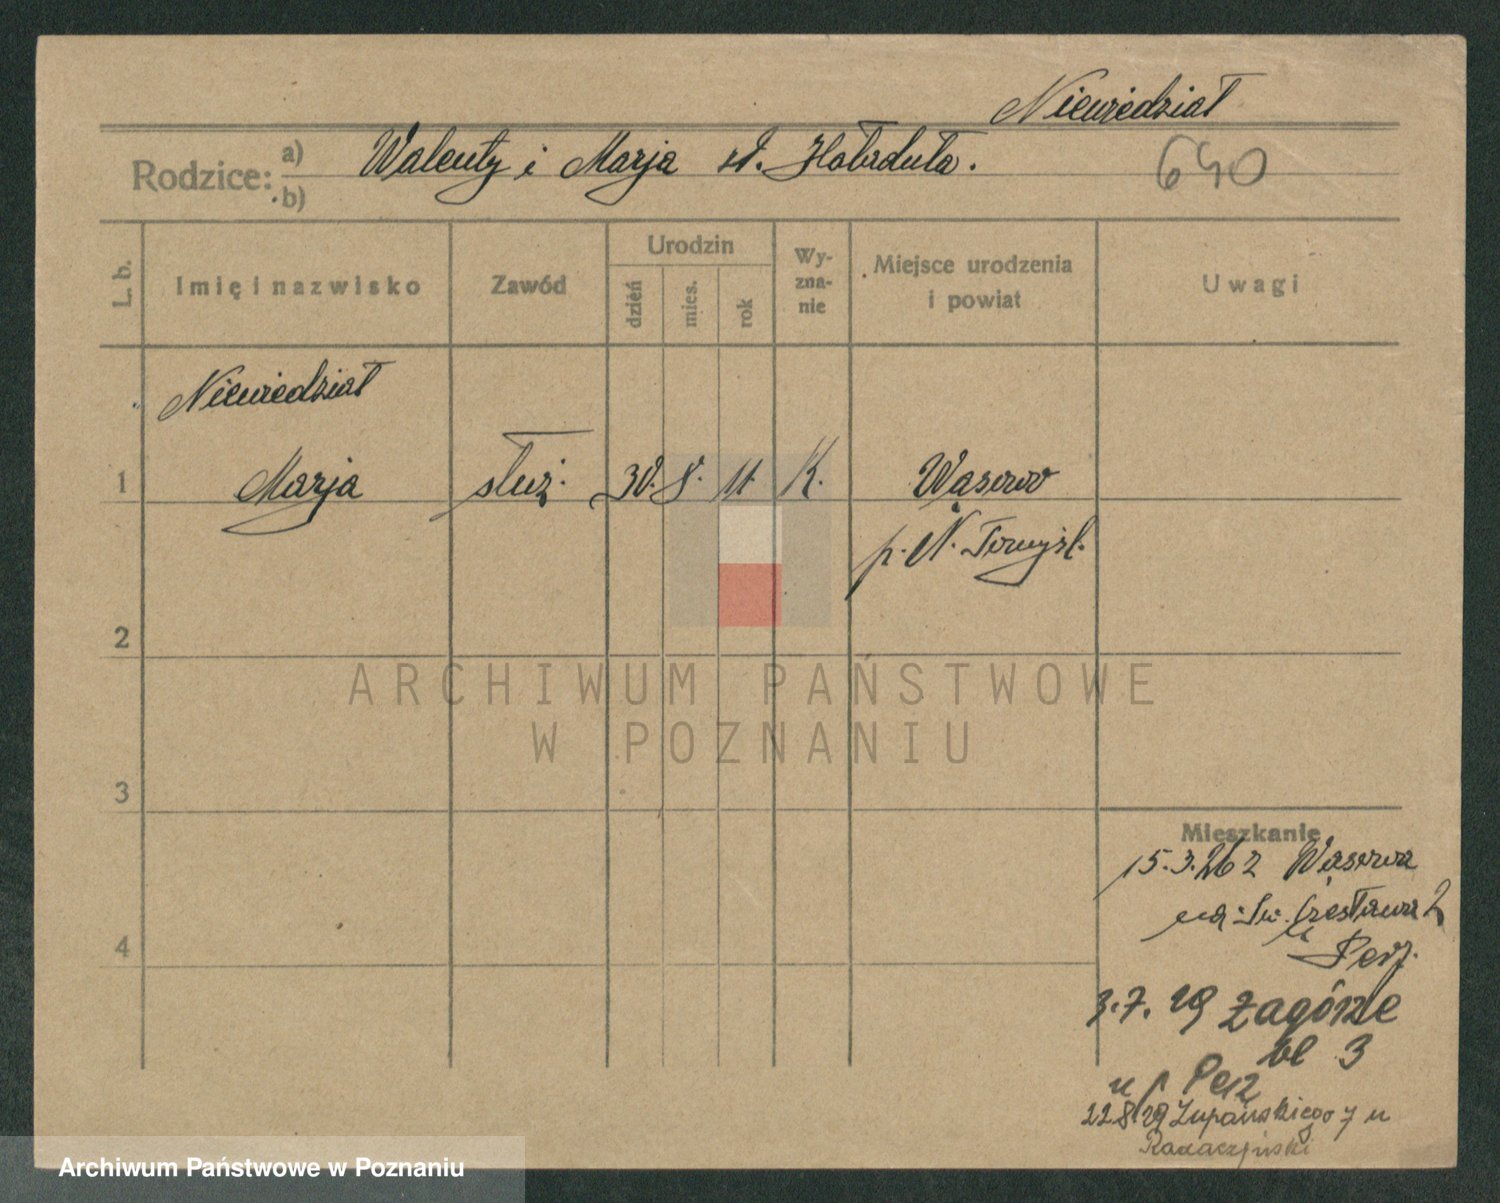 Niewiedział
Rodzice: a) b)
Walenty i Marja
640
L. b.
Imię i nazwisko
Zawód
Urodzin
dzień
mies.
rok
Wy-
zna-
nie
Miejsce urodzenia
i powiat
Uwagi
Niewiedział
1 Marja służ. 30. 8. 11. K. Wąsowo
p. N. Tomyśl.
2
ARCHIWUM PAŃSTWOWE
W POZNANIU
3
Mieszkanie
15.3.26 z Wąsowa
na Św. Czesława 2
4
3.7.29 Zagórze
bl 3
u p
22.8.29 Żupańskiego 7 u
Archiwum Państwowe w Poznaniu